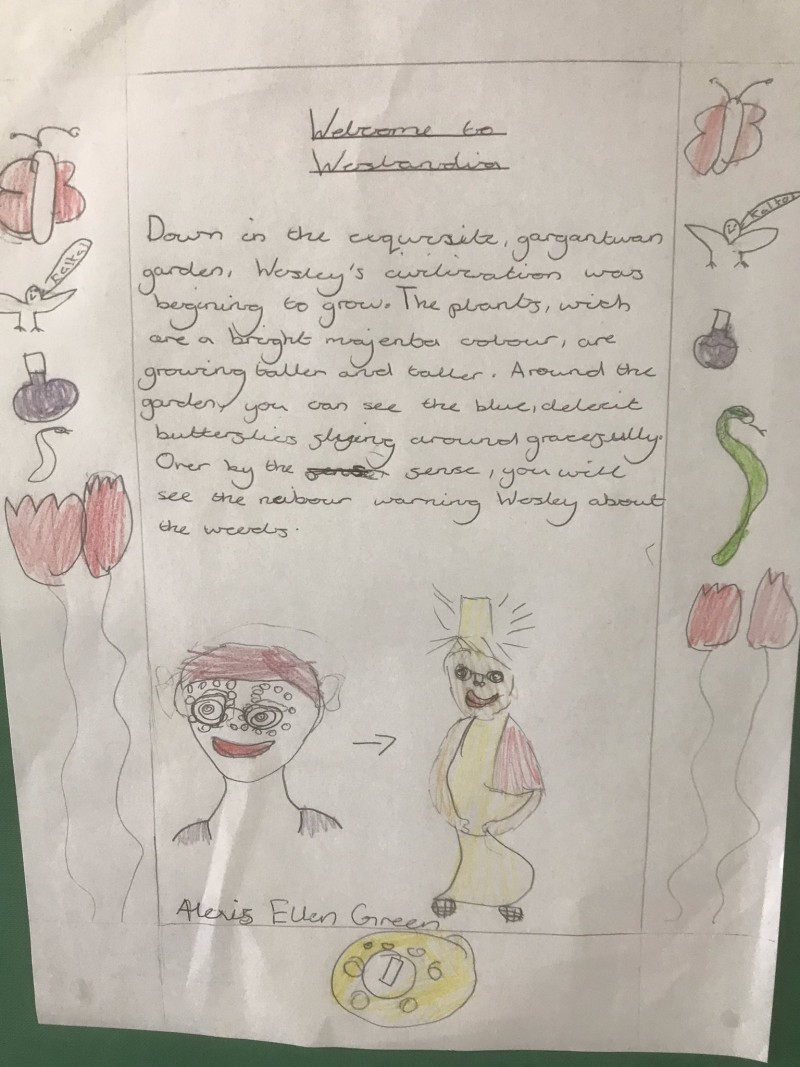 Welcome to
Weslandia
Down in the exquisite, gargantuan
garden, Wesley's civilization was
begining to grow. The plants, wich
are a bright majenta colour, are
growing taller and taller. Around the
garden, you can see the blue, delecit
butterflies flying around gracefully.
Over by the fense, you will
see the nabour warning Wesley about
the weeds.
Alexis Ellen Green